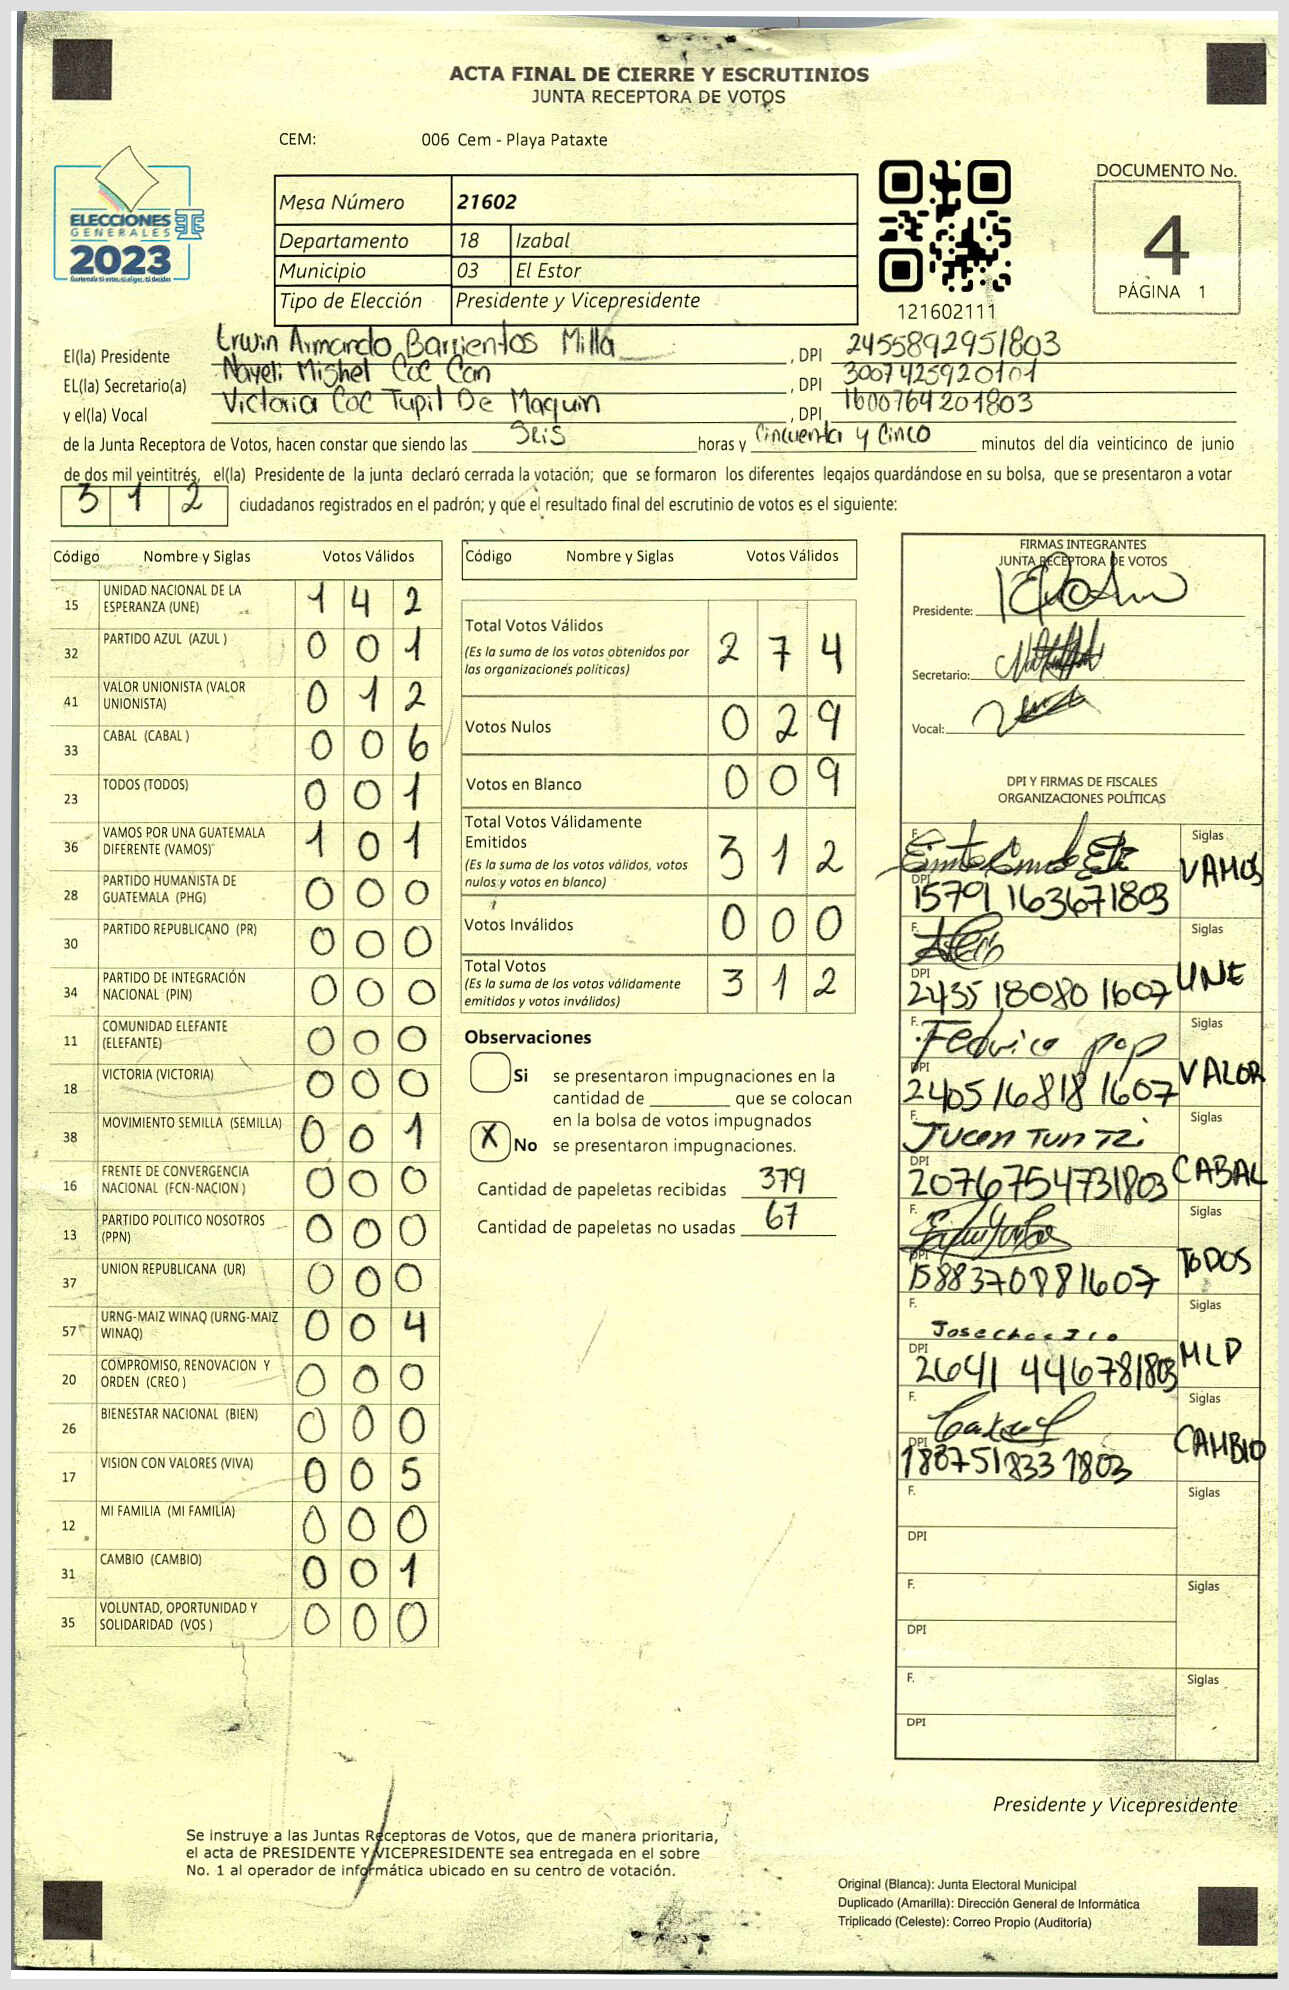 ACTA FINAL DE CIERRE Y ESCRUTINIOS
JUNTA RECEPTORA DE VOTOS
CEM: 006 Cem - Playa Pataxte
ELECCIONES
GENERALES
2023
Mesa Número 21602
Departamento 18 Izabal
Municipio 03 El Estor
Tipo de Elección Presidente y Vicepresidente
121602111
DOCUMENTO No.
4
PÁGINA 1
El(la) Presidente Erwin Armando Barrientos Milla, DPI 2455892951803
EL(la) Secretario(a) Nayeli Mishel Coc Can, DPI 3007425920101
y el(la) Vocal Victoria Coc Tupil De Maquin, DPI 1600764201803
de la Junta Receptora de Votos, hacen constar que siendo las Seis horas y Cincuenta y Cinco minutos del día veinticinco de junio
de dos mil veintitrés, el(la) Presidente de la junta declaró cerrada la votación; que se formaron los diferentes legajos quardándose en su bolsa, que se presentaron a votar
312 ciudadanos registrados en el padrón; y que el resultado final del escrutinio de votos es el siguiente:
Código Nombre y Siglas Votos Válidos
15 UNIDAD NACIONAL DE LA ESPERANZA (UNE) 142
32 PARTIDO AZUL (AZUL ) 001
41 VALOR UNIONISTA (VALOR UNIONISTA) 012
33 CABAL (CABAL ) 006
23 TODOS (TODOS) 001
36 VAMOS POR UNA GUATEMALA DIFERENTE (VAMOS) 101
28 PARTIDO HUMANISTA DE GUATEMALA (PHG) 000
30 PARTIDO REPUBLICANO (PR) 000
34 PARTIDO DE INTEGRACIÓN NACIONAL (PIN) 000
11 COMUNIDAD ELEFANTE (ELEFANTE) 000
18 VICTORIA (VICTORIA) 000
38 MOVIMIENTO SEMILLA (SEMILLA) 001
16 FRENTE DE CONVERGENCIA NACIONAL (FCN-NACION ) 000
13 PARTIDO POLITICO NOSOTROS (PPN) 000
37 UNION REPUBLICANA (UR) 000
57 URNG-MAIZ WINAQ (URNG-MAIZ WINAQ) 004
20 COMPROMISO, RENOVACION Y ORDEN (CREO ) 000
26 BIENESTAR NACIONAL (BIEN) 000
17 VISION CON VALORES (VIVA) 005
12 MI FAMILIA (MI FAMILIA) 000
31 CAMBIO (CAMBIO) 001
35 VOLUNTAD, OPORTUNIDAD Y SOLIDARIDAD (VOS ) 000
Código Nombre y Siglas Votos Válidos
Total Votos Válidos 274
(Es la suma de los votos obtenidos por las organizaciones políticas)
Votos Nulos 029
Votos en Blanco 009
Total Votos Válidamente Emitidos 312
(Es la suma de los votos válidos, votos nulos y votos en blanco)
Votos Inválidos 000
Total Votos 312
(Es la suma de los votos válidamente emitidos y votos inválidos)
Observaciones
Si se presentaron impugnaciones en la
cantidad de ________ que se colocan
en la bolsa de votos impugnados
X No se presentaron impugnaciones.
Cantidad de papeletas recibidas 379
Cantidad de papeletas no usadas 67
FIRMAS INTEGRANTES
JUNTA RECEPTORA DE VOTOS
Presidente:
Secretario:
Vocal:
DPI Y FIRMAS DE FISCALES
ORGANIZACIONES POLÍTICAS
F. Siglas VAMOS
DPI 15791163671803
F. Siglas UNE
DPI 2435180801607
F. Federico pop Siglas VALOR
DPI 2405168181607
F. Juan Tun Tzi Siglas CABAL
DPI 2076754731803
F. Siglas TODOS
DPI 1588370881607
F. Siglas MLP
DPI 2641446781803
F. Siglas CAMBIO
DPI 1887518331803
F. Siglas
DPI
F. Siglas
DPI
F. Siglas
DPI
Presidente y Vicepresidente
Se instruye a las Juntas Receptoras de Votos, que de manera prioritaria,
el acta de PRESIDENTE Y VICEPRESIDENTE sea entregada en el sobre
No. 1 al operador de informática ubicado en su centro de votación.
Original (Blanca): Junta Electoral Municipal
Duplicado (Amarilla): Dirección General de Informática
Triplicado (Celeste): Correo Propio (Auditoría)